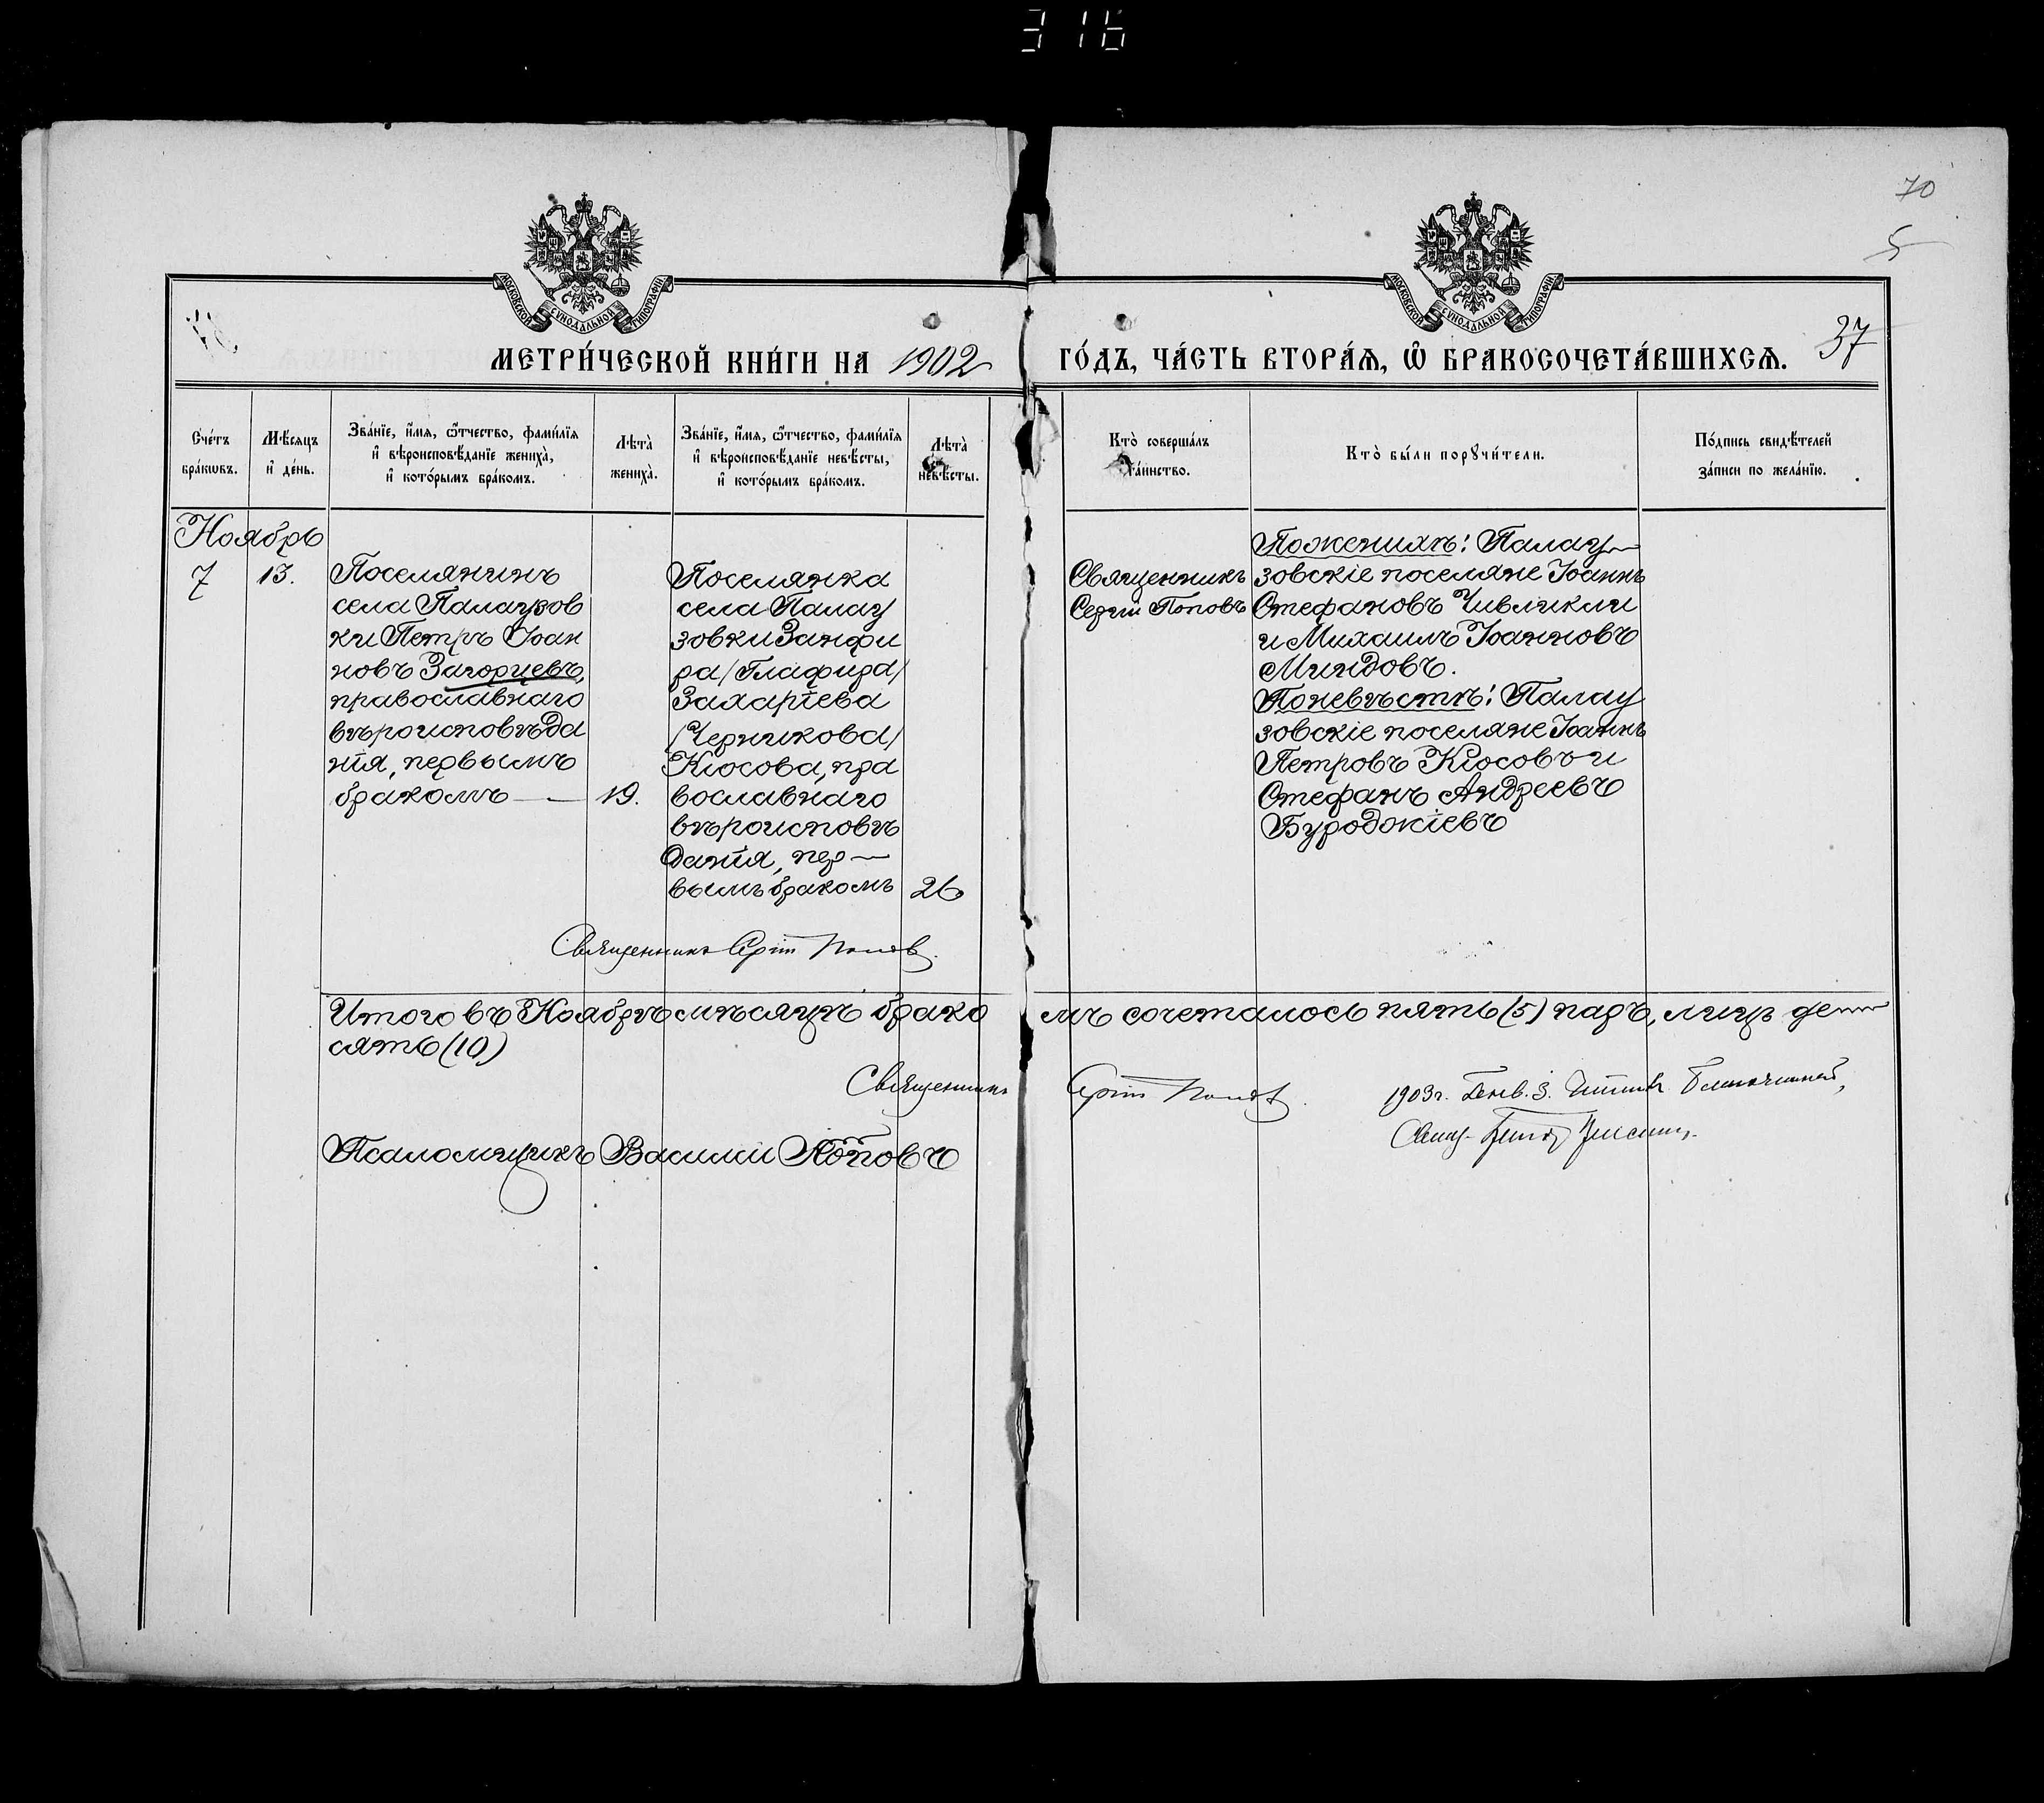 316
70
5
МОСКОВСКОЙ СѴНОДАЛЬНОЙ ТИПОГРАФІИ
МОСКОВСКОЙ СѴНОДАЛЬНОЙ ТИПОГРАФІИ
МЕТРИ́ЧЕСКОЙ КНИ́ГИ НА 1902 ГО́ДЪ, ЧА́СТЬ ВТОРА́Ѧ, Ѡ҆ БРАКОСОЧЕТА́ВШИХСѦ. 37
Сче́тъ бра́кѡвъ.
Мѣ́сѧцъ и҆ де́нь.
Зва́нїе, и҆́мѧ, ѿ́чество, фами́лїѧ и҆ вѣроисповѣ́данїе жениха̀, и҆ кото́рымъ бра́комъ.
Лѣта̀ жениха̀.
Зва́нїе, и҆́мѧ, ѿ́чество, фами́лїѧ и҆ вѣроисповѣ́данїе невѣ́сты, и҆ кото́рымъ бра́комъ.
Лѣта̀ невѣ́сты.
Кто̀ соверша́лъ та́инство.
Кто̀ бы́ли порꙋчи́тели.
По́дпись свидѣ́телей за́писи по жела́нїю.
Ноябрь
7
13.
Поселянинъ
села Палаузов
ки Петръ Іоан
новъ Загорцевъ,
православнаго
вѣроисповѣда
нія, первымъ
бракомъ —
19.
Поселянка
села Палау
зовки Занфи
ра /Глафира/
Захаріева
/Черникова/
Кіосова, пра
вославнаго
вѣроисповѣ
данія, пер—
вымъ бракомъ
26
Священникъ
Сергій Поповъ
По женихѣ: Палау—
зовскіе поселяне Іоаннъ
Стефановъ Чивликли
и Михаилъ Іоанновъ
Миндовъ.
По невѣстѣ: Палау
зовскіе поселяне Іоаннъ
Петровъ Кіосовъ и
Стефанъ Андреевъ
Буроджіевъ
Священникъ Сергій Поповъ.
Итого въ Ноябрѣ мѣсяцѣ брако мъ сочеталось пять (5) паръ, лицъ де
сять (10)
Священникъ Сергій Поповъ.
1903 г. Генв. 3. Читалъ Благочинный,
Свящ.
Псаломщикъ Василій Поповъ